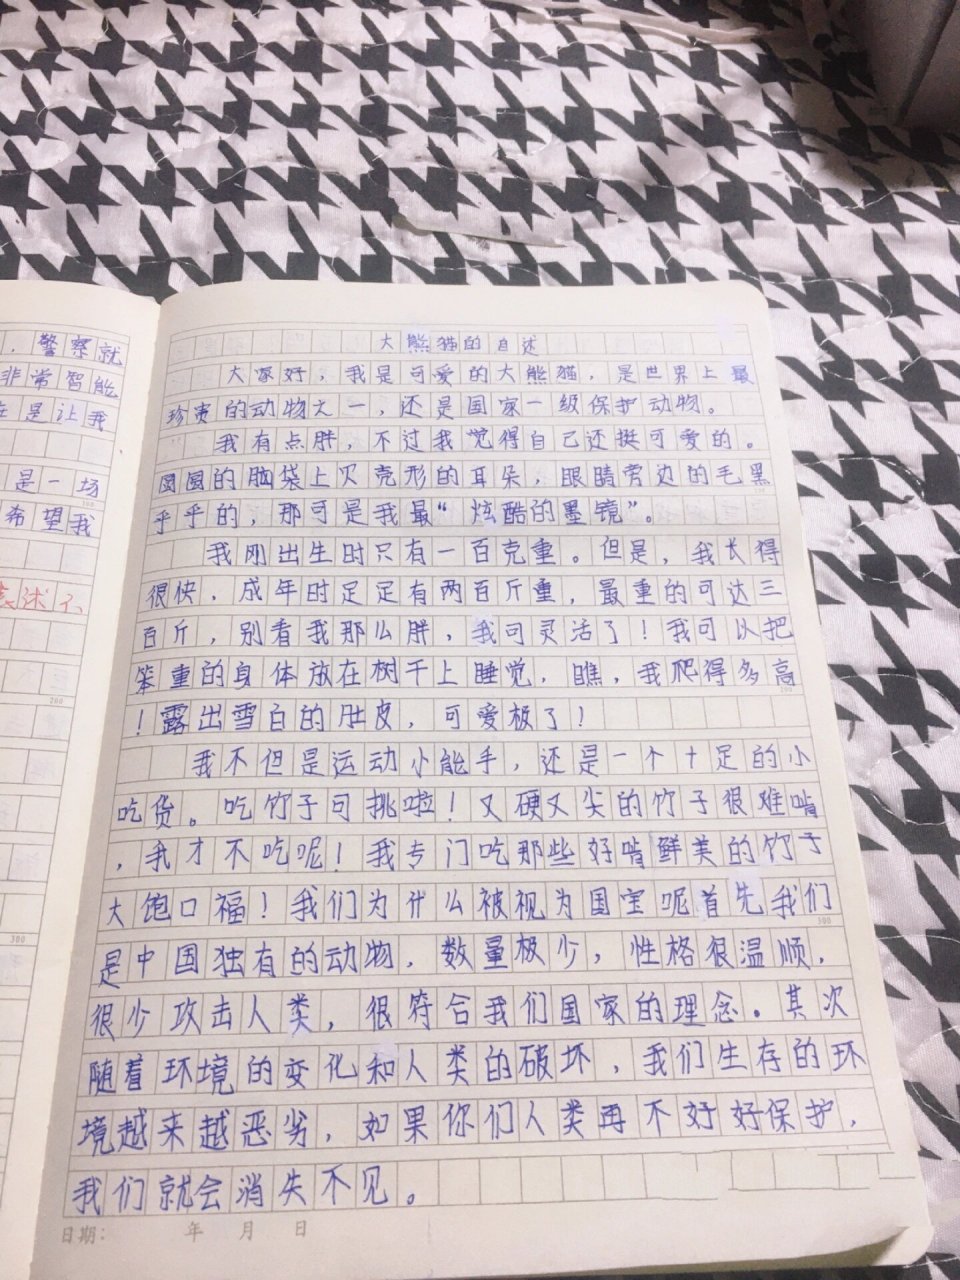 ，警察就
非常智能
是让我
是一场
希望我
述不
大熊猫的自述
大家好，我是可爱的大熊猫，是世界上最
珍贵的动物之一，还是国家一级保护动物。
我有点胖，不过我觉得自己还挺可爱的。
圆圆的脑袋上贝壳形的耳朵，眼睛旁边的毛黑
乎乎的，那可是我最“炫酷的墨镜”。
我刚出生时只有一百克重。但是，我长得
很快，成年时足足有两百斤重，最重的可达三
百斤，别看我那么胖，我可灵活了！我可以把
笨重的身体放在树干上睡觉，瞧，我爬得多高
！露出雪白的肚皮，可爱极了！
我不但是运动小能手，还是一个十足的小
吃货。吃竹子可挑啦！又硬又尖的竹子很难啃
，我才不吃呢！我专门吃那些好啃鲜美的竹子
大饱口福！我们为什么被视为国宝呢首先我们
是中国独有的动物，数量极少，性格很温顺，
很少攻击人类，很符合我们国家的理念。其次
随着环境的变化和人类的破坏，我们生存的环
境越来越恶劣，如果你们人类再不好好保护，
我们就会消失不见。
日期： 年 月 日